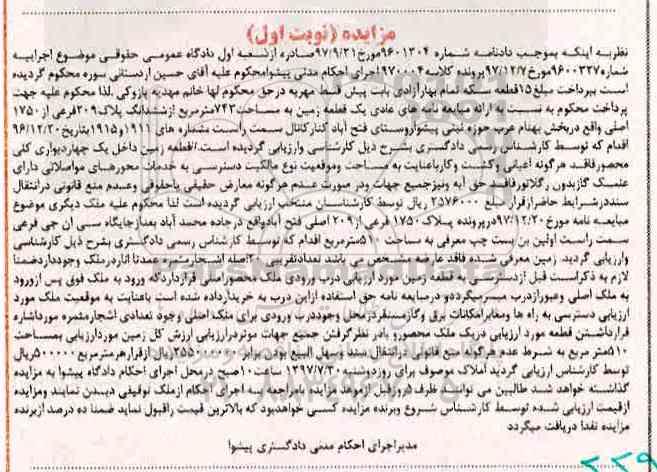 مزایده (نوبت اول)
نظربه اینکه بموجب دادنامه شماره ۹۶۰۱۳۰۴مورخ۹۷/۹/۲۱صادره ازشعبه اول دادگاه عمومی حقوقی موضوع اجراییه
شماره۹۶۰۰۳۲۷مورخ۹۷/۱۲/۷پرونده کلاسه۹۷۰۰۰۴اجرای احکام مدنی پیشوامحکوم علیه آقای حسین اردستانی سوره محکوم گردیده
است بپرداخت مبلغ۱۵قطعه سکه تمام بهارآزادی بابت پیش قسط مهریه درحق محکوم لها خانم مهدیه پازوکی .لذا محکوم علیه جهت
پرداخت محکوم به نسبت به ارائه مبایعه نامه های عادی یک قطعه زمین به مساحت۷۴۳مترمربع ازششدانگ پلاک۲۰۹فرعی از۱۷۵۰
اصلی واقع دربخش بهنام عرب حوزه ثبتی پیشواروستای فتح آباد کنارکانال سمت راست مشماره های ۱۹۱۱و۱۹۱۵بتاریخ۹۶/۱۲/۲۰
اقدام که توسط کارشناس رسمی دادگستری بشرح ذیل کارشناسی وارزیابی گردیده است./قطعه زمین داخل یک چهاردیواری کلی
محصورفاقد هرگونه اعیانی وکشت وکارباعنایت به مساحت وموقعیت نوع مالکیت دسترسی به خدمات محورهای مواصلاتی دارای
علمک گازبدون رگلاتورفاقد حق آبه ونیزجمیع جهات ودر صورت عدم هرگونه معارض حقیقی یاحقوقی وعدم منع قانونی درانتقال
سنددرشرایط حاضرازقرار مبلغ ۲۵۷۶۰۰۰ ریال توسط کارشناسان منتخب ارزیابی گردیده است لذا محکوم علیه ملک دیگری موضوع
مبایعه نامه مورخ۹۷/۱۲/۲۰درپرونده پلاک۱۷۵۰ فرعی از۲۰۹اصلی فتح آبادواقع درجاده محمد آباد بعدازجایگاه سی ان جی فرعی
سمت راست اولین بن بست چپ معرفی به مساحت ۵۱۰مترمربع اقدام که توسط کارشناس رسمی دادگستری بشرح ذیل کارشناسی
وارزیابی گردید. زمین معرفی شده فاقد عارضه مشخص می باشد تعدادتقریبی ۲۰اصله اشجارمثمره عمدتا اناردرملک وجودداردضمنا
لازم به ذکراست قبل ازدسترسی به قطعه زمین مورد ارزیابی درب ورودی ملک محصوراصلی قرارداردکه ورود به ملک فوق پس ازورود
به ملک اصلی وعبورازدرب میسرمیگرددو درمبایعه نامه حق استفاده ازاین درب به خریدارداده شده است باعنایت به موقعیت ملک مورد
ارزیابی دسترسی به راه ها ومعابرامکانات برق وگازمستقردرمحل وجوددرب ورودی برای ملک اصلی وجود تعدادی اشجارمثمره مورداشاره
قرارداشتن قطعه مورد ارزیابی دریک ملک محصورو بادر نظرگرفتن جمیع جهات موثردرارزیابی ارزش کل زمین موردارزیابی بمساحت
۵۱۰متر مربع به شرط عدم هرگونه منع قانونی درانتقال سند وسهل البیع بودن برابر ۲۵۵۰۰۰۰۰۰ریال ازقرارهرمترمربع ۵۰۰۰۰۰ریال
توسط کارشناس ارزیابی گردید املاک موصوف برای روزدوشنبه ۱۳۹۷/۷/۳۰ ساعت۱۰صبح درمحل اجرای احکام دادگاه پیشوا به مزایده
گذاشته خواهد شد طالبین می توانند ظرف۵روزقبل ازموعد مزایده بامراجعه به اجرای احکام ازملک توقیفی دیدن نمایند ومزایده
ازقیمت ارزیابی شده توسط کارشناس شروع وبرنده مزایده کسی خواهدبود که بالاترین قیمت راقبول نماید ضمنا ده درصد ازبرنده
مزایده نقدا دریافت میگردد
مدیراجرای احکام مدنی دادگستری پیشوا